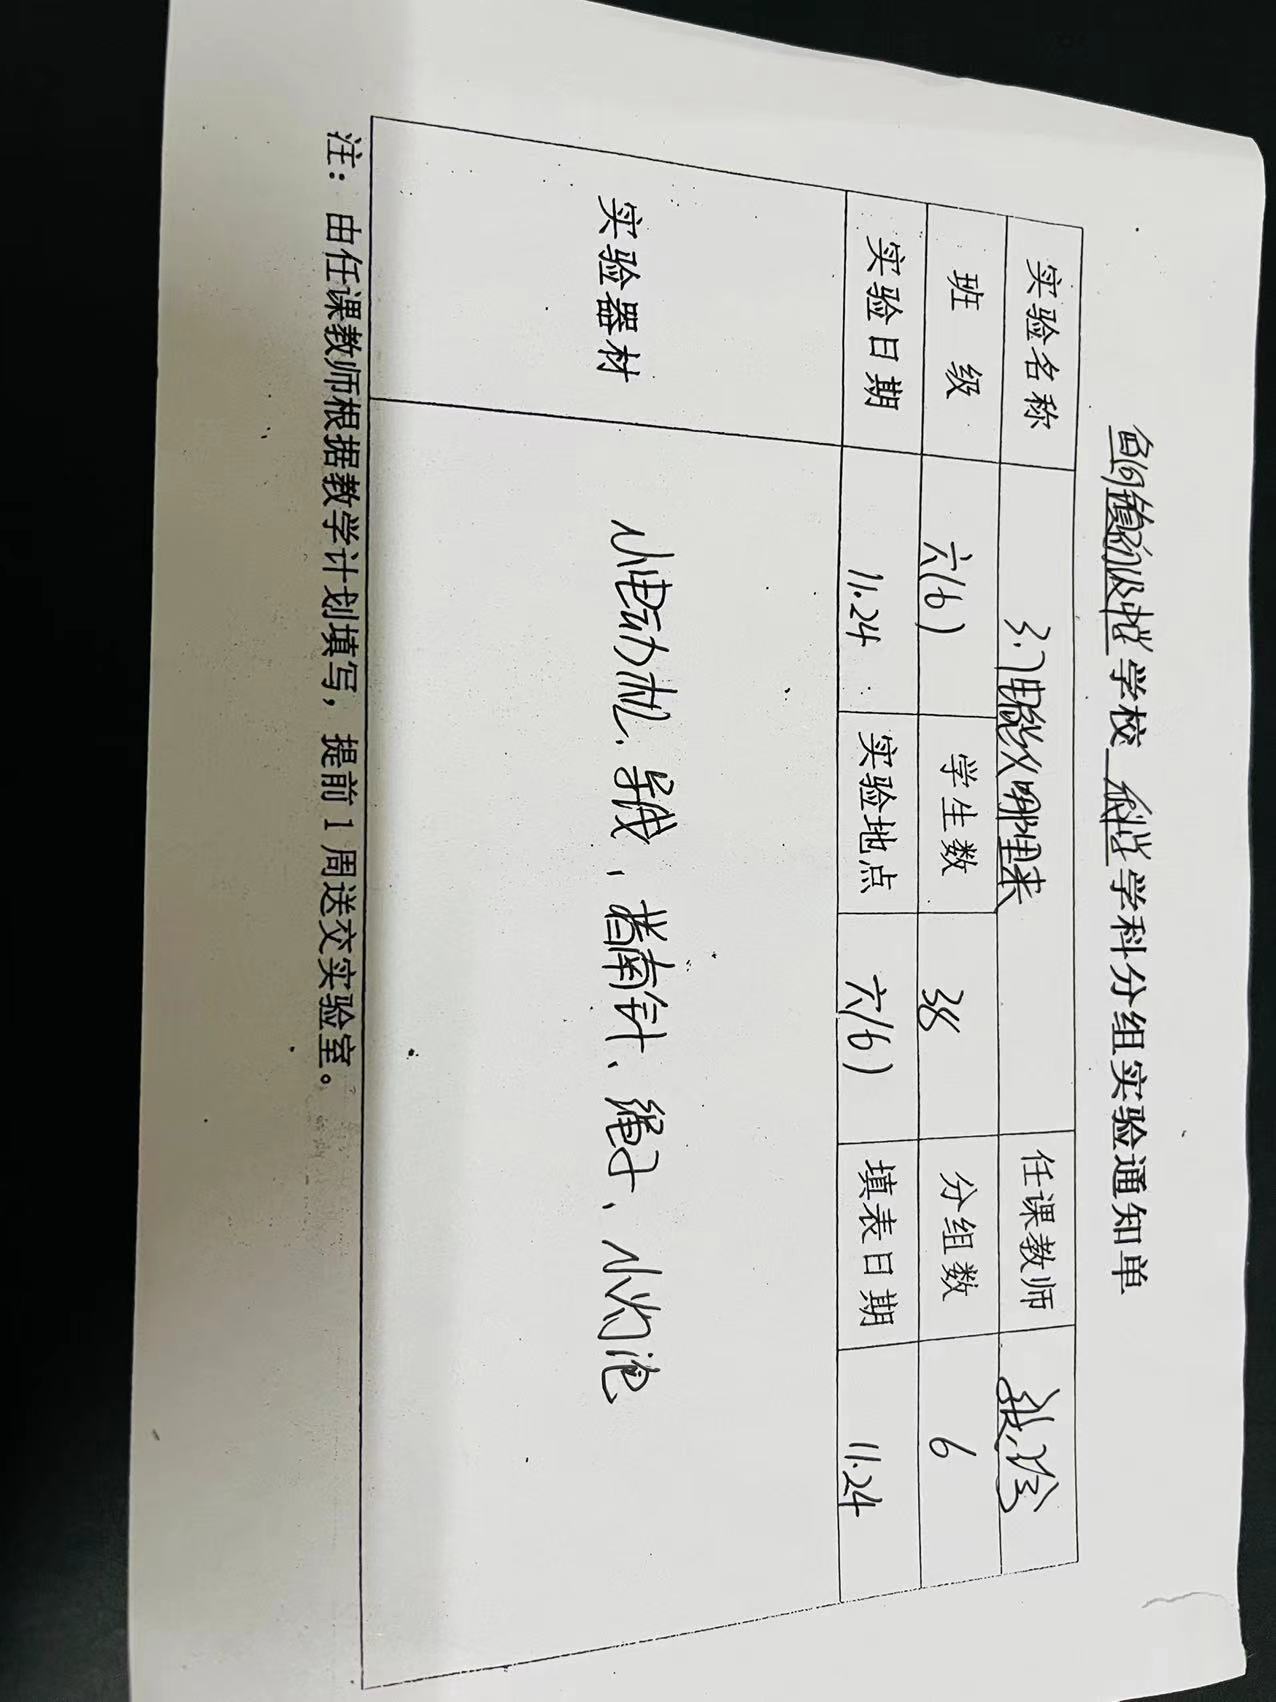 学校 科学 学科分组实验通知单
实验名称 3.7电能从哪里来 任课教师 张
班 级 六(6) 学生数 38 分组数 6
实验日期 11.24 实验地点 六(6) 填表日期 11.24
实验器材 小电动机、导线、指南针、绳子、小灯泡
注：由任课教师根据教学计划填写，提前1周送交实验室。